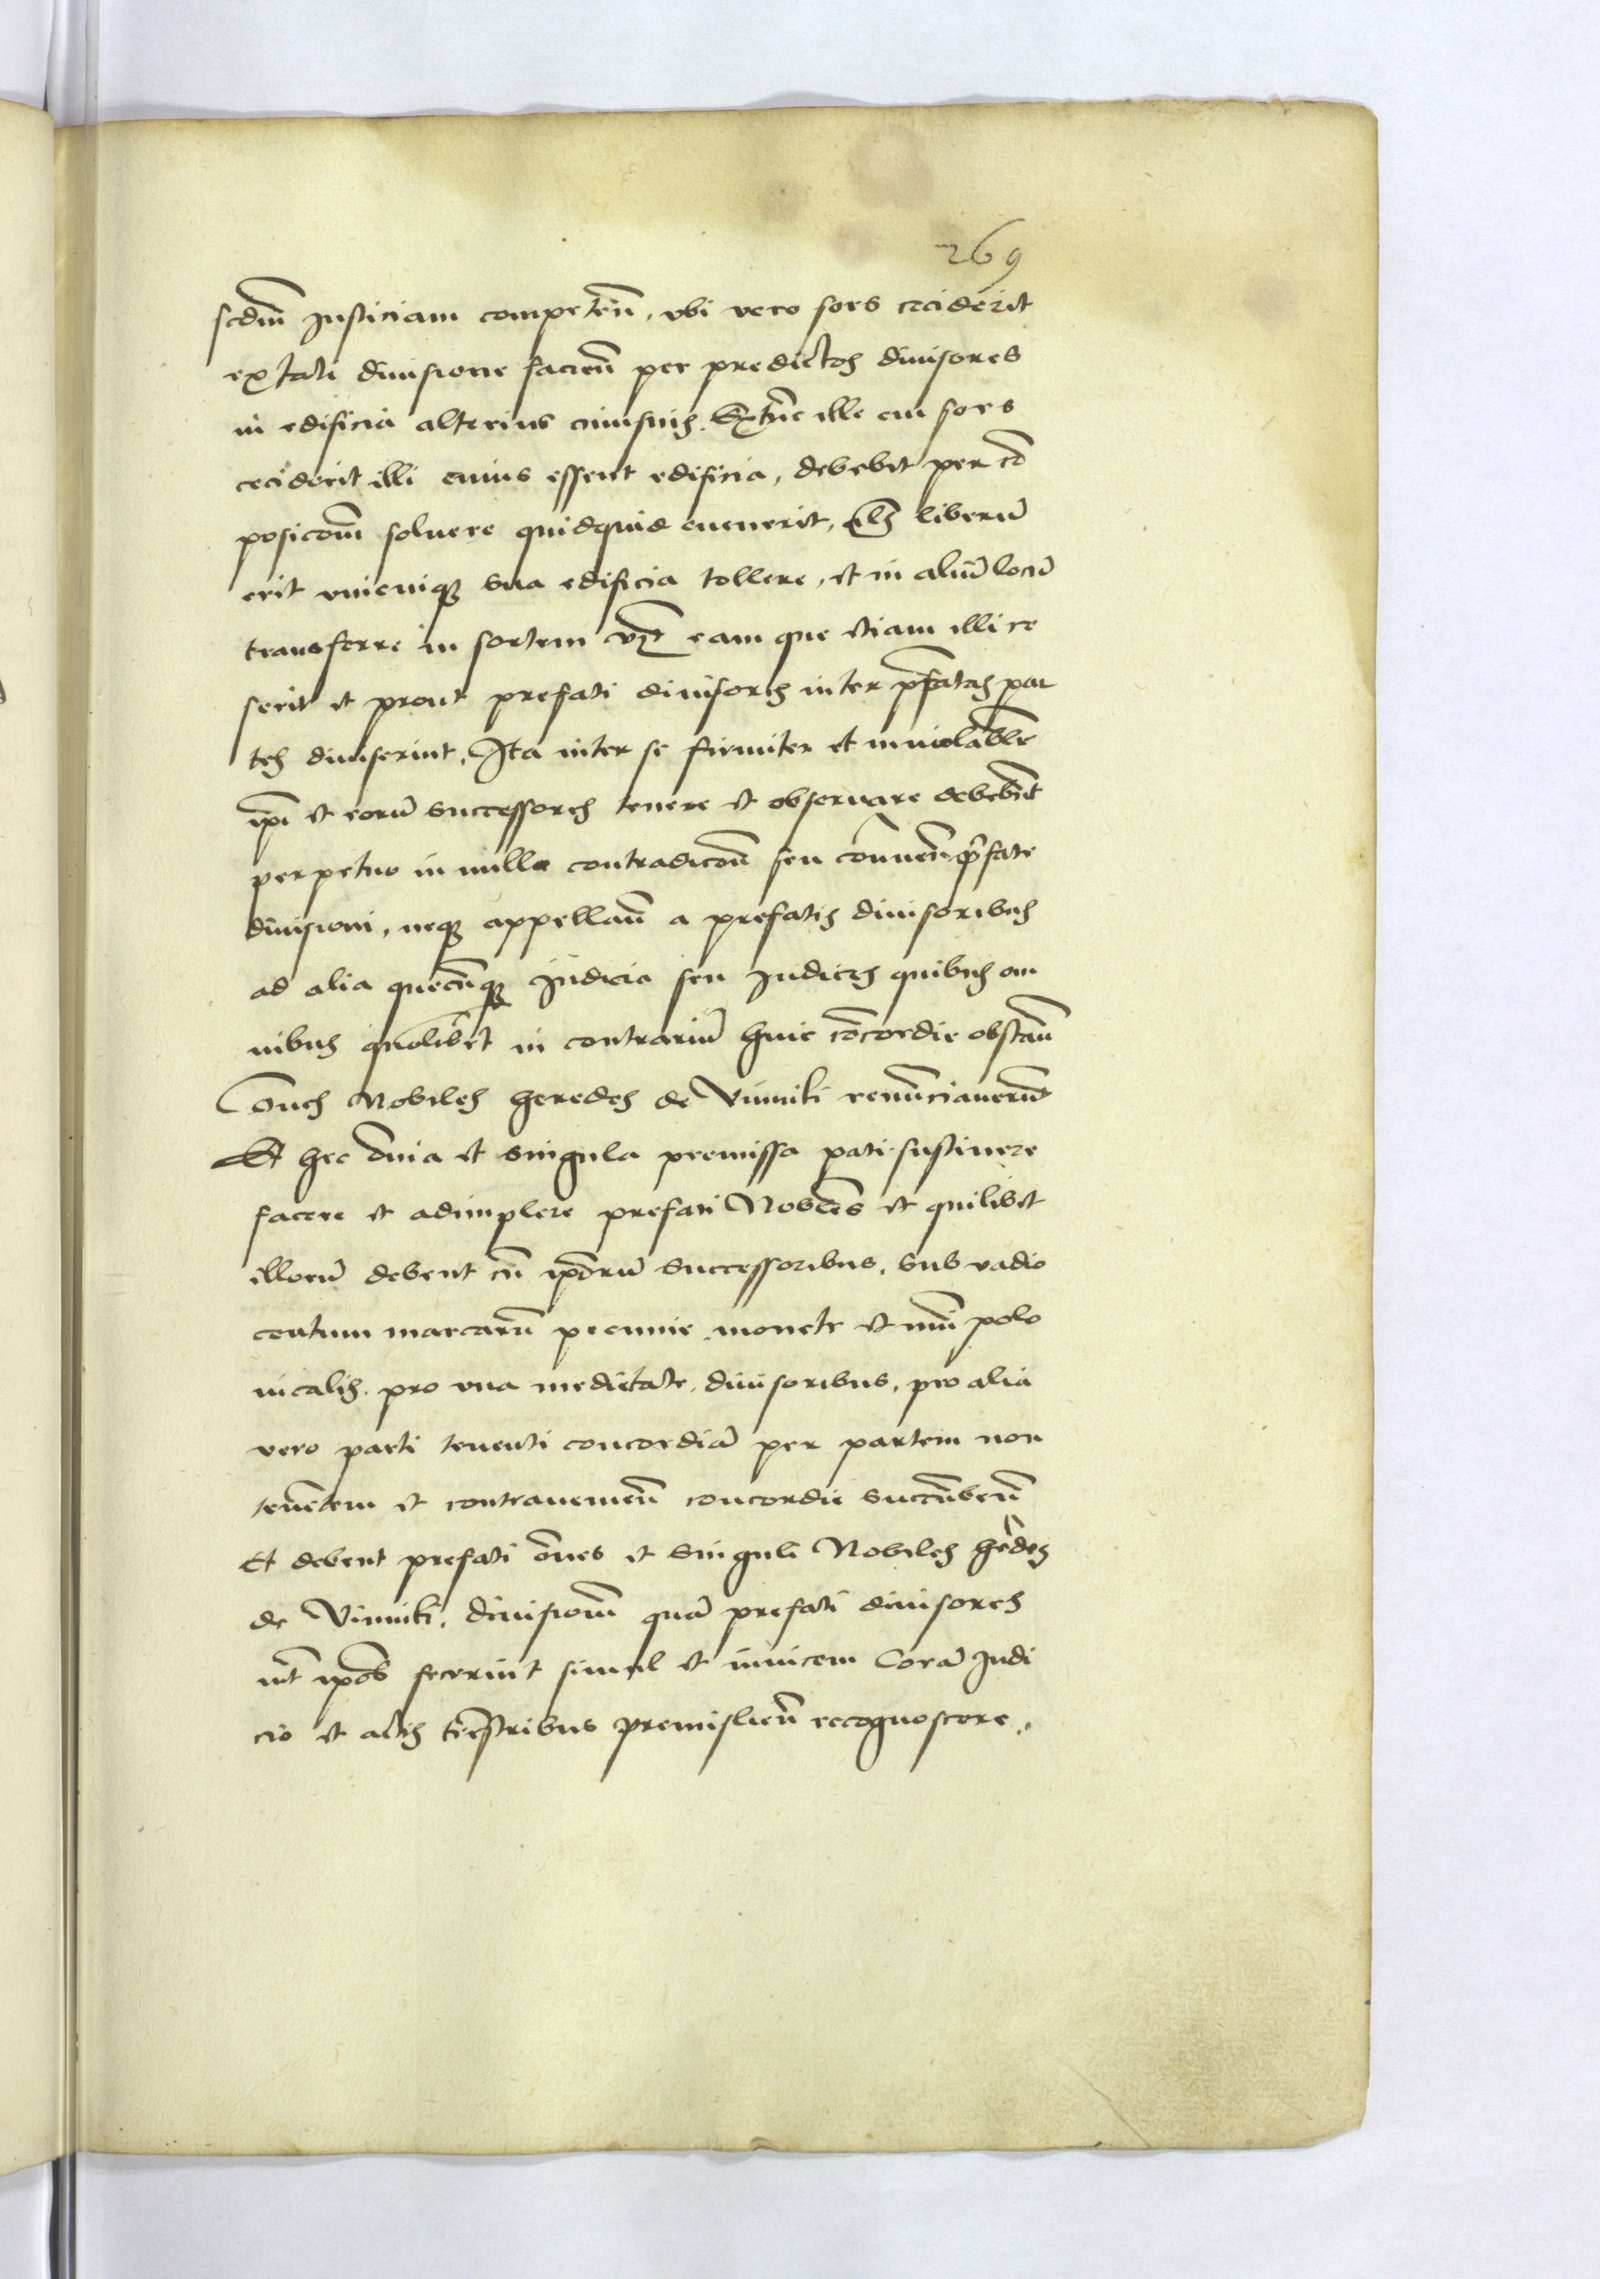 269
scdm Justiciam competen, vbi vero sors ceciderit
ex tali diuisione facien per predictos diuisores
in edificia alterius cuiusuis. Extunc ille cui sors
ceciderit illi cuius essent edificia, debebit per co
posicom soluere quidquid euenerit, liberu
erit vnicuiq sua edificia tollere, et in aliu locu
transferre in sortem vz eam que etiam illi ce
serit et prout prefati diuisores inter pfatas par
tes diuiserint, Ita inter se firmiter et inuiolable
ipi et eoru successores tenere et obseruare debebunt
perpetuo in nullo contradicen seu conuen pfate
diuisioni, neq appellan a prefatis diuisoribus
ad alia quecunq Judicia seu Judices quibus om
nibus quolibet in contrariu huic concordie obstan
Omes Nobiles heredes de Vinniki renunciauerunt
Et hec omia et singula premissa pati sustinere
facere et adimplere prefati Nobles et quilibet
illoru debent cu iporu successoribus, sub vadio
centum marcaru pecunie monete et nui polo
nicalis, pro vna medietate, diuisoribus, pro alia
vero parti tenenti concordia per partem non
tenetem et contrauenien concordie succumben
Et debent prefati omes et singuli Nobiles heredes
de Vinniki, diuisiom qua prefati diuisores
int ipos fecerint simul et inuicem Cora Judi
cio et actis trestribus premislien recognoscere.